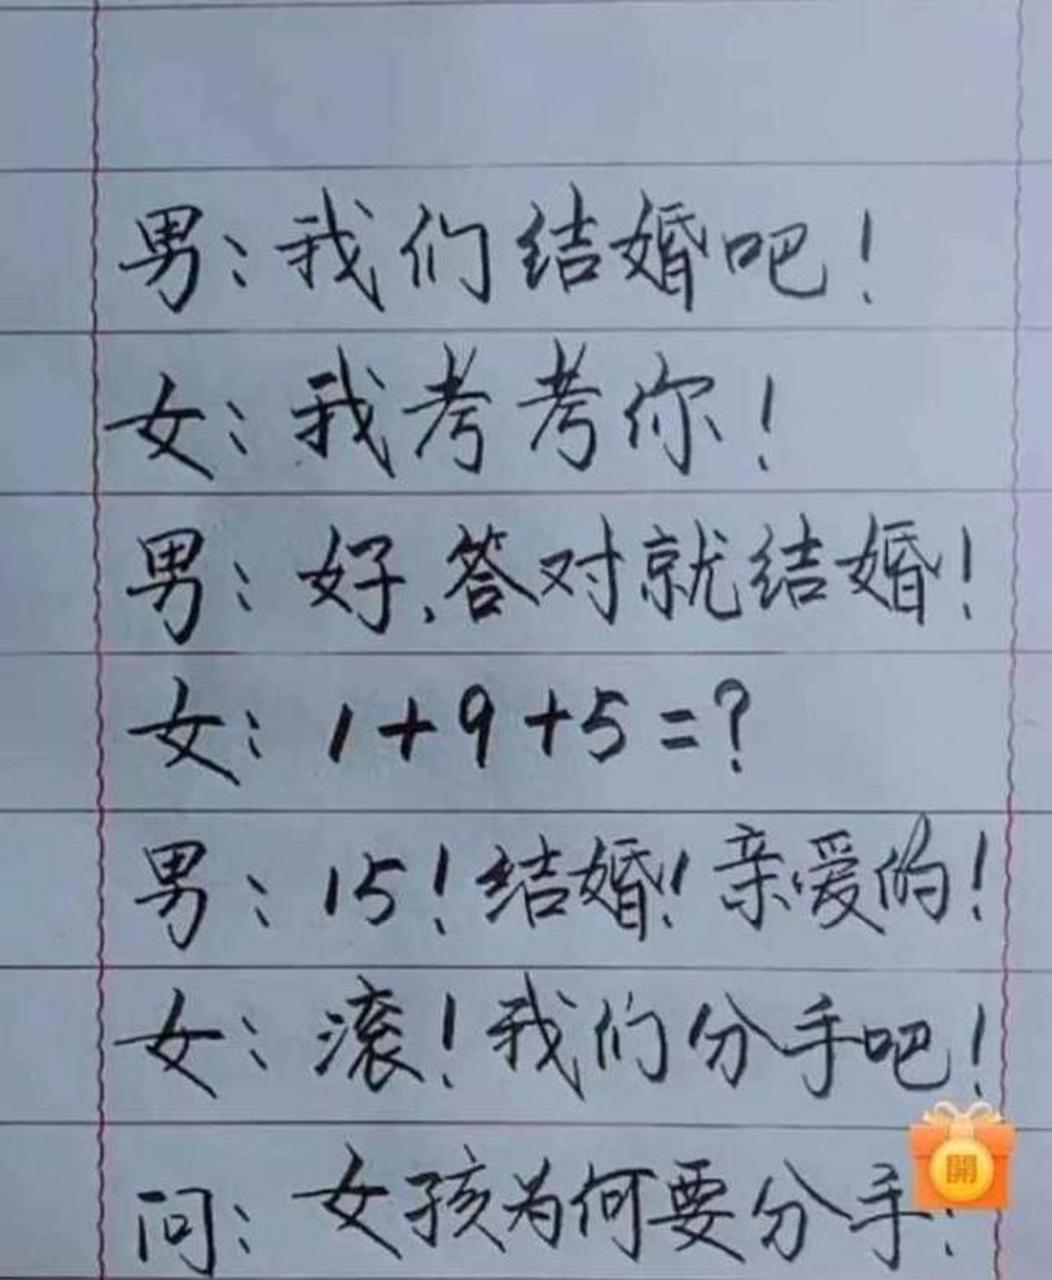 男：我们结婚吧！
女：我考考你！
男：好，答对就结婚！
女：1+9+5=?
男：15！结婚！亲爱的！
女：滚！我们分手吧！
開
问：女孩为何要分手